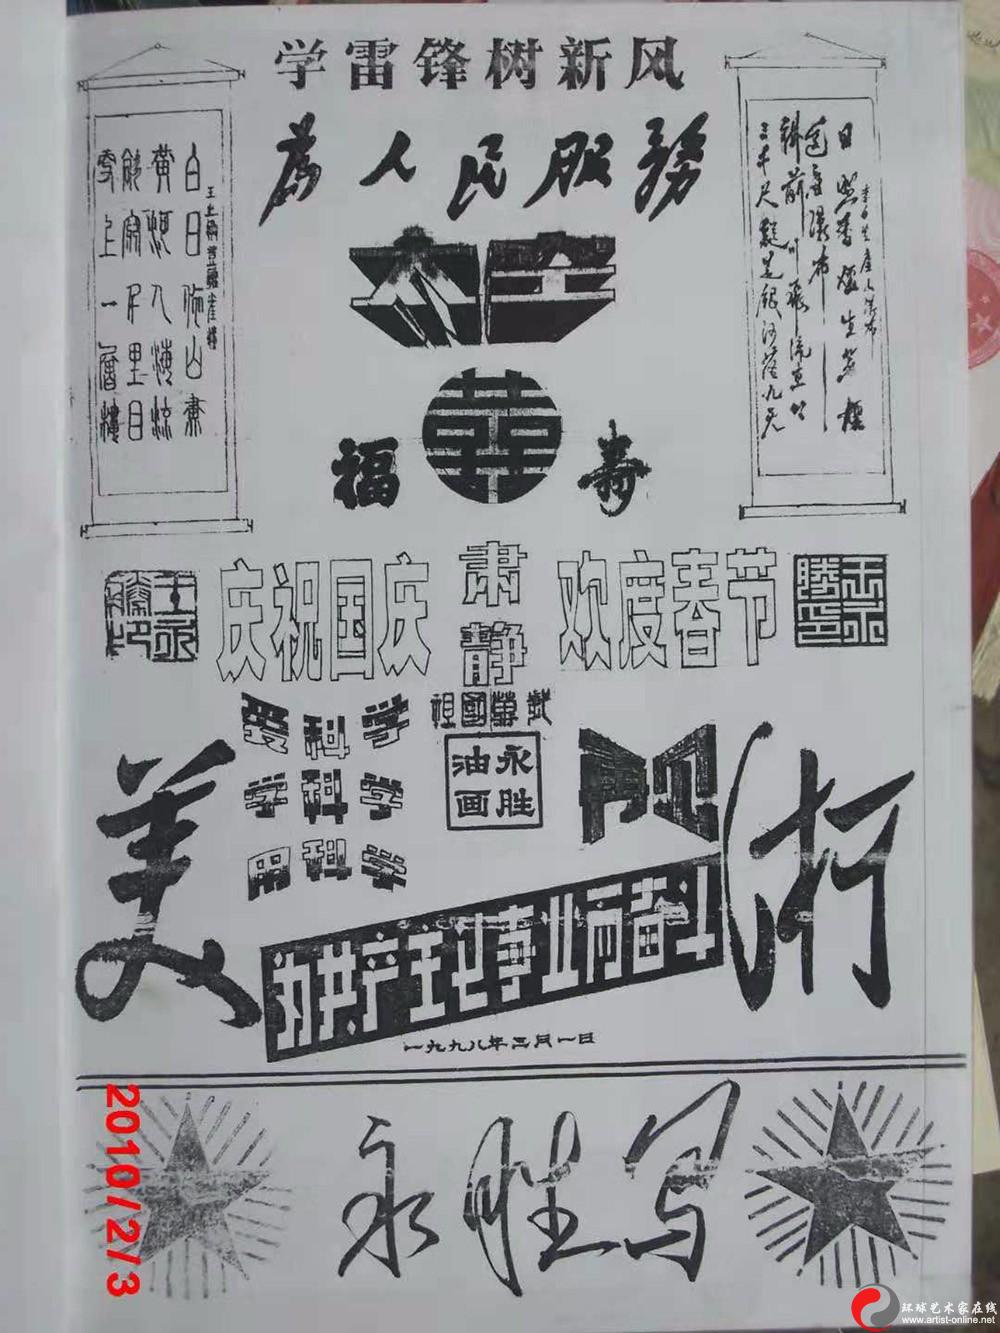 学雷锋树新风
為人民服務
白日依山
黄河入海流
欲窮千里目
更上一層樓
日照香炉生紫烟
遥看瀑布
挂前川飞流直下
三千尺疑是银河落九天
太空
福
寿
庆祝国庆
肃静
欢度春节
王永勝印
爱科学
学科学
用科学
祖國萬歲
永胜
油画
再见
美術
为共产主义事业而奋斗
一九九八年三月一日
永胜写
2010/2/3
环球艺术家在线
www.artist-online.net